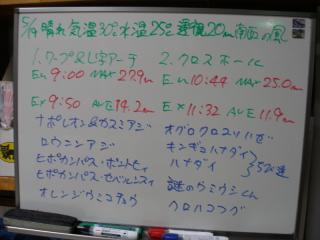 5/9 晴れ 気温30℃ 水温25℃ 透視20m 南西の風
1. ワープ&L字アーチ
2. クロスホール
En 9:00 MAX 27.9m
En 10:44 MAX 25.0m
EX 9:50 AVE 14.2m
EX 11:32 AVE 11.9m
ナポレオン&カスミアジ
ロウニンアジ
ヒポカンパス・ポントヒィ
ヒポカンパス・セベルンスィ
オレンジウミコチョウ
オグロクロユリハゼ
キンギョハナダイ
ハナダイ
うじゃ達
謎のウミウシくん
クロハコフグ